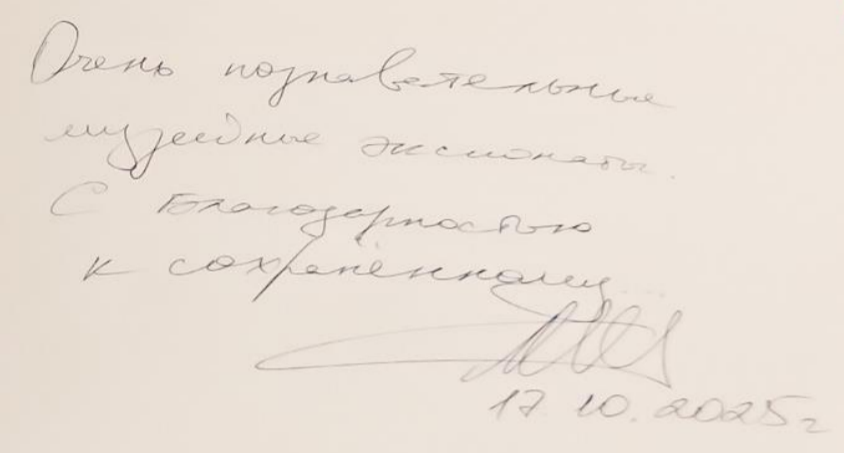 Очень познавательные
музейные экспонаты.
С Благодарностью
к сохранённому...
17 10.2025г